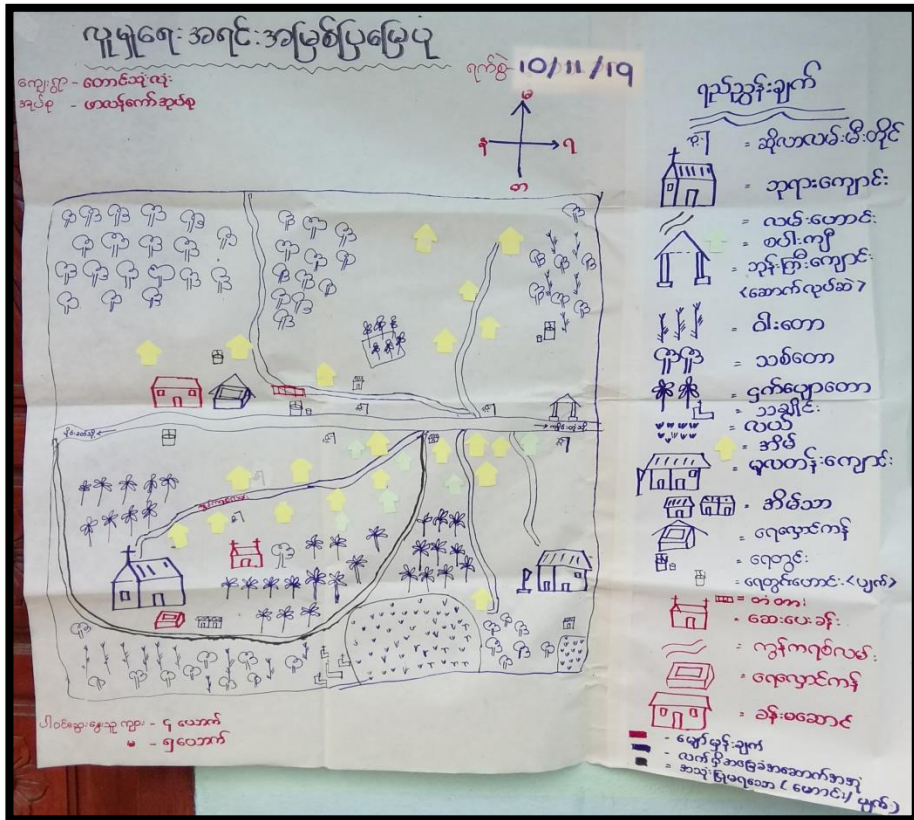 လူမှုရေးအရင်းအမြစ်ပြမြေပုံ
ရက်စွဲ- 10/11/19
ကျေးရွာ - တောင်သုံးလုံး
အုပ်စု - ဖာလန်ကော်အုပ်စု
မ
န
ရ
တ
ရည်ညွှန်းချက်
= ဆိုလာလမ်းမီးတိုင်
= ဘုရားကျောင်း
= လမ်းဟောင်း
= စပါးကျီ
= ဘုန်းကြီးကျောင်း
<ဆောက်လုပ်ဆဲ>
= ဝါးတော
= သစ်တော
= ငှက်ပျောတော
= သင်္ချိုင်း
= လယ်
= အိမ်
= မူလတန်းကျောင်း
= အိမ်သာ
= ရေလှောင်ကန်
= ရေတွင်း
= ရေတွင်းဟောင်း <ပျက်>
= တံတား
= ဆေးပေးခန်း
= ကွန်ကရစ်လမ်း
= ရေလှောင်ကန်
= ခန်းမဆောင်
- မျှော်မှန်းချက်
- လက်ရှိအခြေခံအဆောက်အအုံ
- အသုံးပြုမရသော (ဟောင်း/ပျက်)
ပါဝင်ဆွေးနွေးသူ ကျား - ၄ ယောက်
မ - ၅ ယောက်